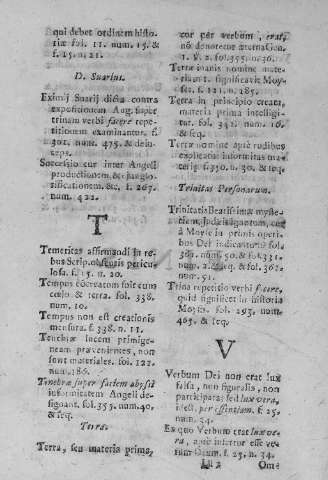 qui debet ordinem histo-
riæ fol. 11. num. 15. &
f. 15. n. 21.
D. Suarius.
Eximij Suarij dicta contra
expositionem Aug. super
trinam verbi facere repe-
titionem examinantur. f.
302. num. 475. & dein-
ceps.
Successio cur inter Angeli
productionem, &
rificationem, &c. f. 267.
num. 422.
T
Temeritas affirmandi in re-
bus pericu-
losa. f. 15. n. 20.
Tempus concreatum fuit cum
cœlo & terra. fol. 338.
num. 10.
Tempus non est creationis
mensura. f. 338. n. 11.
Tenebræ lucem primige-
neam prævenientes, non
sunt materiales. foi. 122.
num. 186.
Tenebræ super faciem abyssi
informitatem Angeli de-
signant. fol. 355. num. 40,
& seq.
Terra.
Terra, seu materia prima,
cor per verbum, erat,
nō denotetur æterna Gen.
1. v. 2. fol. 355. n. 36.
Terræ inanis nomine mate-
riam 1. significavit Moy-
ses. f. 121. n. 185.
Terra in principio creata,
materia prima intelligi-
tur. fol. 342. num. 16.
& seq.
Terræ nomine apte rudibus
explicatur informitas ma-
teriæ. f. 350. n. 30. & seq.
Trinitas Personarum.
Trinitatis Beatissimæ myste-
rium, Judæis ignotum, cur
à Moyse in primis operi-
bus Dei indicatum? fol.
301. num. 50. & fol. 361.
num. 2. & seq. & fol. 362.
num. 51.
Trina repetitio verbi facere,
quid significet in historia
Moysis. fol. 293. num.
465. & seq.
V
Verbum Dei non erat lux
falsa, non figuralis, non
participata; sed lux vera,
id est, per essentiam. f. 25.
num. 34.
Ex quo Verbum erat lux ve-
ra, apte infertur esse ve-
rum Deum. f. 25. n. 34.
Ll 2 Om-